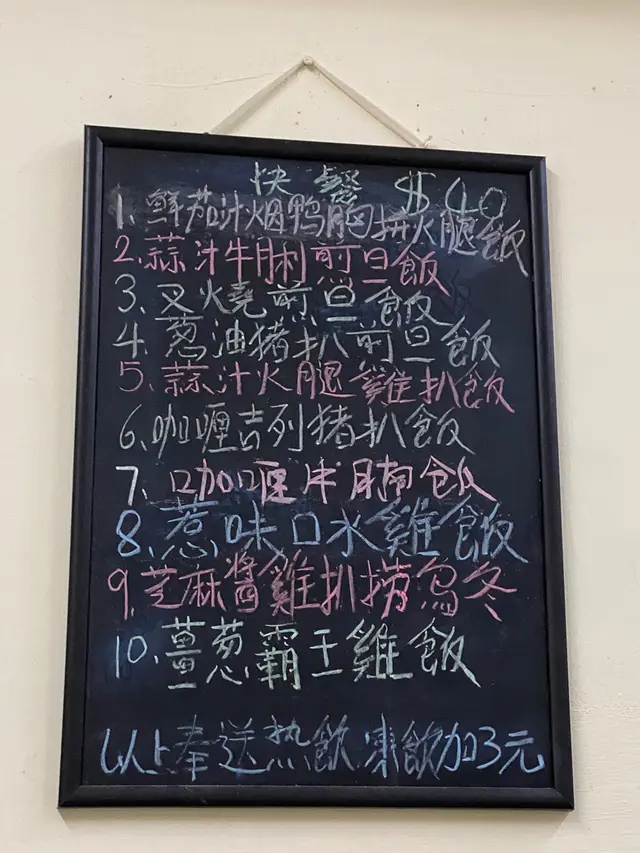 快餐 $40
1. 鲜茄汁烟鸭胸拼火腿飯
2. 蒜汁牛脷煎旦飯
3. 叉燒煎旦飯
4. 葱油猪扒煎旦飯
5. 蒜汁火腿雞扒飯
6. 咖喱吉列猪扒飯
7. 咖喱牛腩飯
8. 惹味口水雞飯
9. 芝麻醬雞扒撈烏冬
10. 薑葱霸王雞飯
以上奉送热飲凍飲加3元